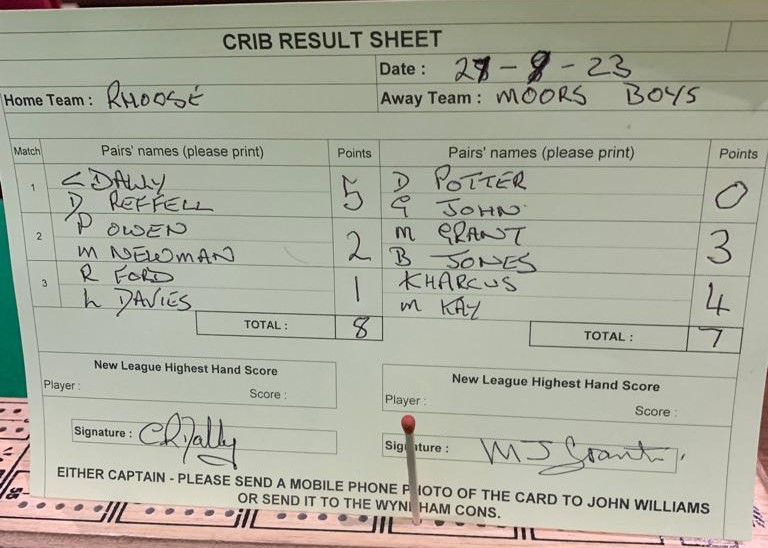 CRIB RESULT SHEET
Date : 29 - 8 - 23
Home Team : RHOOSE
Away Team : MOORS BOYS
Match Pairs' names (please print) Points Pairs' names (please print) Points
1 DALLY 5 D POTTER 0
D REFFELL G JOHN
2 P OWEN 2 M GRANT 3
M NEWMAN B JONES
3 R FORD 1 K HARCUS 4
L DAVIES M KAY
TOTAL : 8 TOTAL : 7
New League Highest Hand Score New League Highest Hand Score
Player : Player :
Score : Score :
Signature : C R Dally Signature : M J Grant
EITHER CAPTAIN - PLEASE SEND A MOBILE PHONE PHOTO OF THE CARD TO JOHN WILLIAMS
OR SEND IT TO THE WYNDHAM CONS.